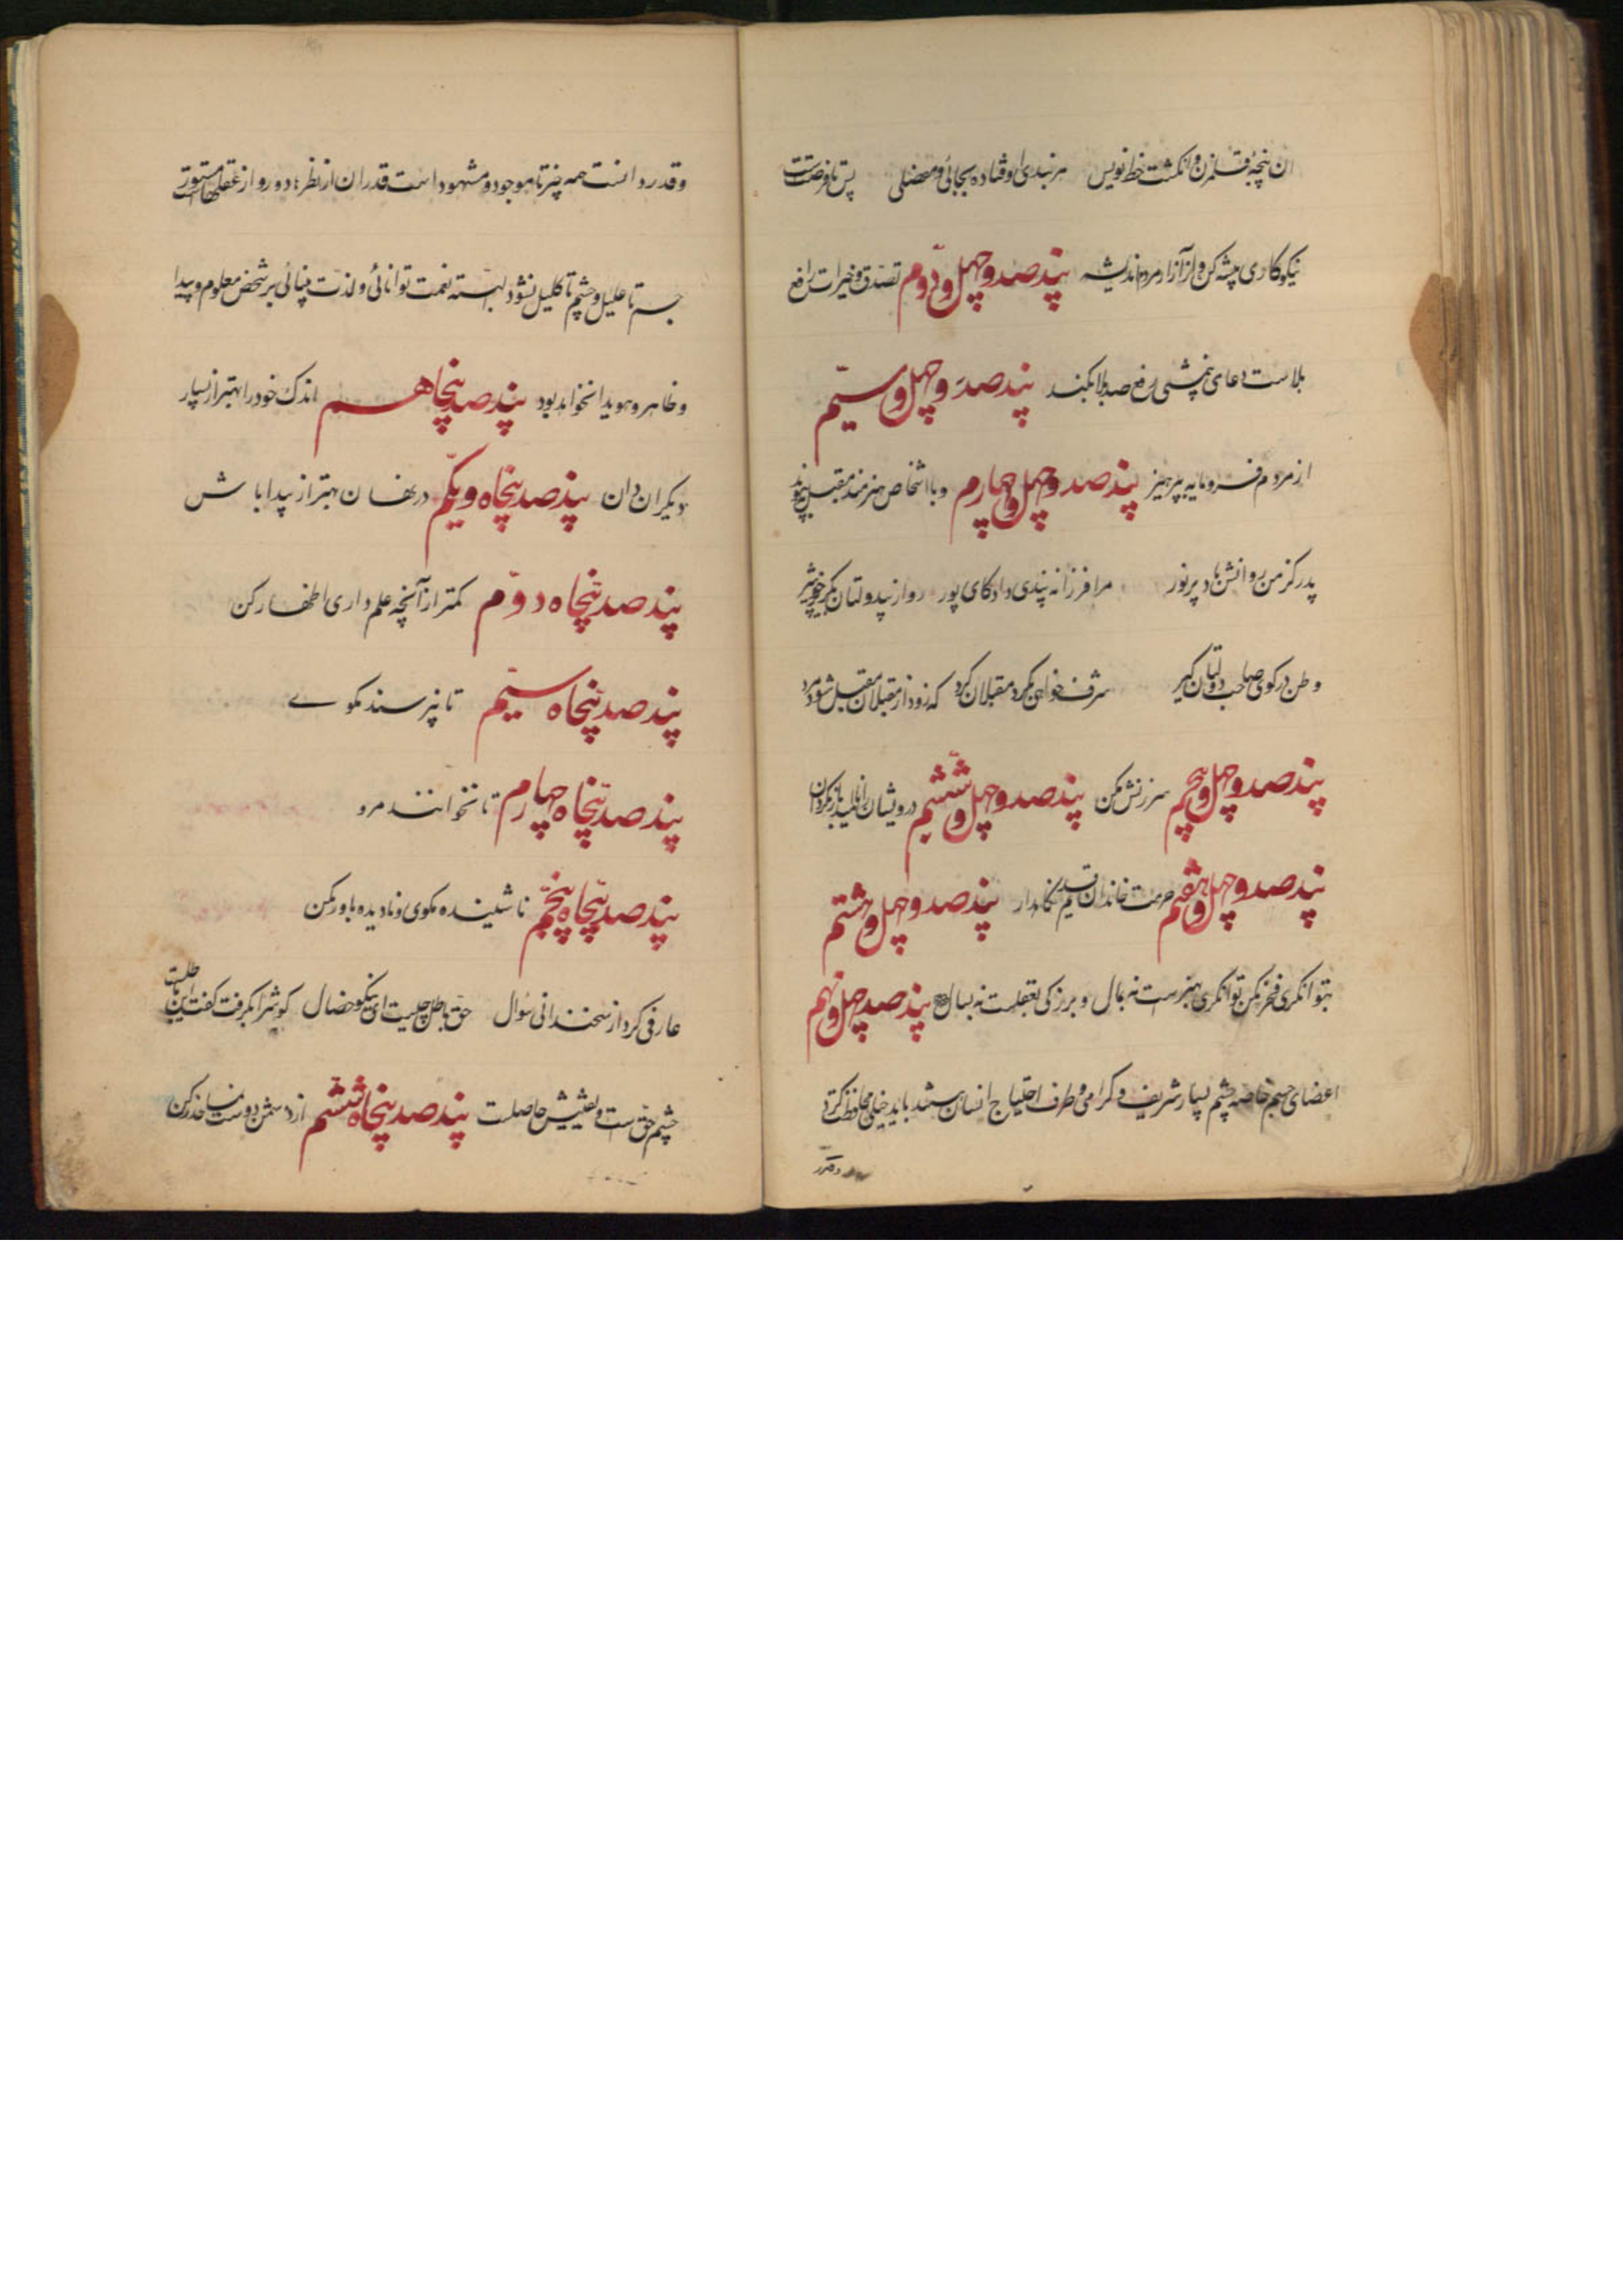 ان پنجهٔ قلمزن و انگشت خط نویس هر بندی اوفتاده بجائی و مفصلی پس تا فرصتست
نیکوکاری پیشه کن و از آزار مردم اندیشه پند صد و چهل و دوم تصدق و خیرات رافع
بلاست دعای نیمشبی دفع صد بلا بکند پند صد و چهل و سیم
از مردم فرومایه بپرهیز پند صد و چهل و چهارم و با اشخاص هنرمند مقبل پیوند
پدر کز من روانش باد پر نور مرا فرزانه پندی داد کای پور رو از بیدولتان بگریز چون تیر
وطن در کوی صاحب دولتان گیر شرف خواهی بگرد مقبلان گرد که زود از مقبلان مقبل شود مرد
پند صد و چهل و پنجم سرزنش مکن پند صد و چهل و ششم درویشان را نا امید باز مگردان
پند صد و چهل و هفتم حرمت خاندان قدیم نگاهدار پند صد و چهل و هشتم
بتوانگری فخر مکن توانگری بهنرست نه بمال و بزرگی بعقلست نه بسال پند صد چهل و نهم
اعضای جسم خاصه چشم بسیار شریف و گرامی و طرف احتیاج انسان هستند باید خیلی محافظت کرد
و قدر
و قدر دانست همه چیز تا موجود و مشهود است قدر ان از نظرها دور و از عقلها مستور است
جسم تا علیل و چشم تا کلیل نشود البته نعمت توانائی و لذت بینائی بر شخص معلوم و پیدا
و ظاهر و هویدا نخواهد بود پند صد پنجاهم اندک خود را بهتر از بسیار
دیگران دان پند صد پنجاه و یکم در نهان بهتر از پیدا باش
پند صد پنجاه دوم کمتر از آنچه علم داری اظهار کن
پند صد پنجاه سیم تا نپرسند مگوے
پند صد پنجاه چهارم تا نخوانند مرو
پند صد پنجاه پنجم ناشنیده مگوی و نادیده باور مکن
عارفی کرد از سخندانی سؤال حق و باطل چیست ای نیکو خصال گوش را بگرفت گفت این باطلست
چشم حق ست و یقینش حاصلست پند صد پنجاه ششم از دشمن دوست نما حذر کن